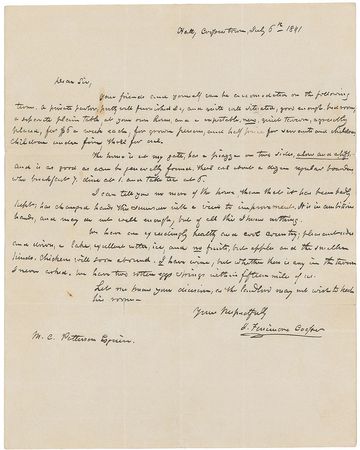 Hall, Cooperstown, July 6th 1841
Dear Sir,
Your friends and yourself can be accommodated on the following
terms. A private parlor, pretty well furnished &c, and quite well situated, good enough bed rooms,
a separate plain table, at your own hours, and a respectable, new, quiet tavern, agreeably
placed, for $6 a week each, for grown persons, and half price for servants and children.
Children under five
The house is at my gate, has a piazza on two sides,
and is as good as can be generally found. They eat about a dozen regular boarders
who breakfast 7. dine at 1. and take tea at 6.
I can tell you no more of the house than that it has been badly
kept; has changed hands this summer with a view to improvement. It is in ambitious
hands, and may do well enough, but of all this I know nothing.
We have an exceedingly healthy and cool country; pleasant rides
and drives, a lake, excellent water, ice, and no fruits, but apples and the smaller
kinds. Chickens will soon abound. I have wine, but whether there is any in the tavern
I never asked. We have two rotten egg springs within fifteen miles of us.
Let me know your decision, as the landlord may not wish to keep
his rooms
Yours Respectfully
J. Fenimore Cooper
M. C. Patterson Esquire.